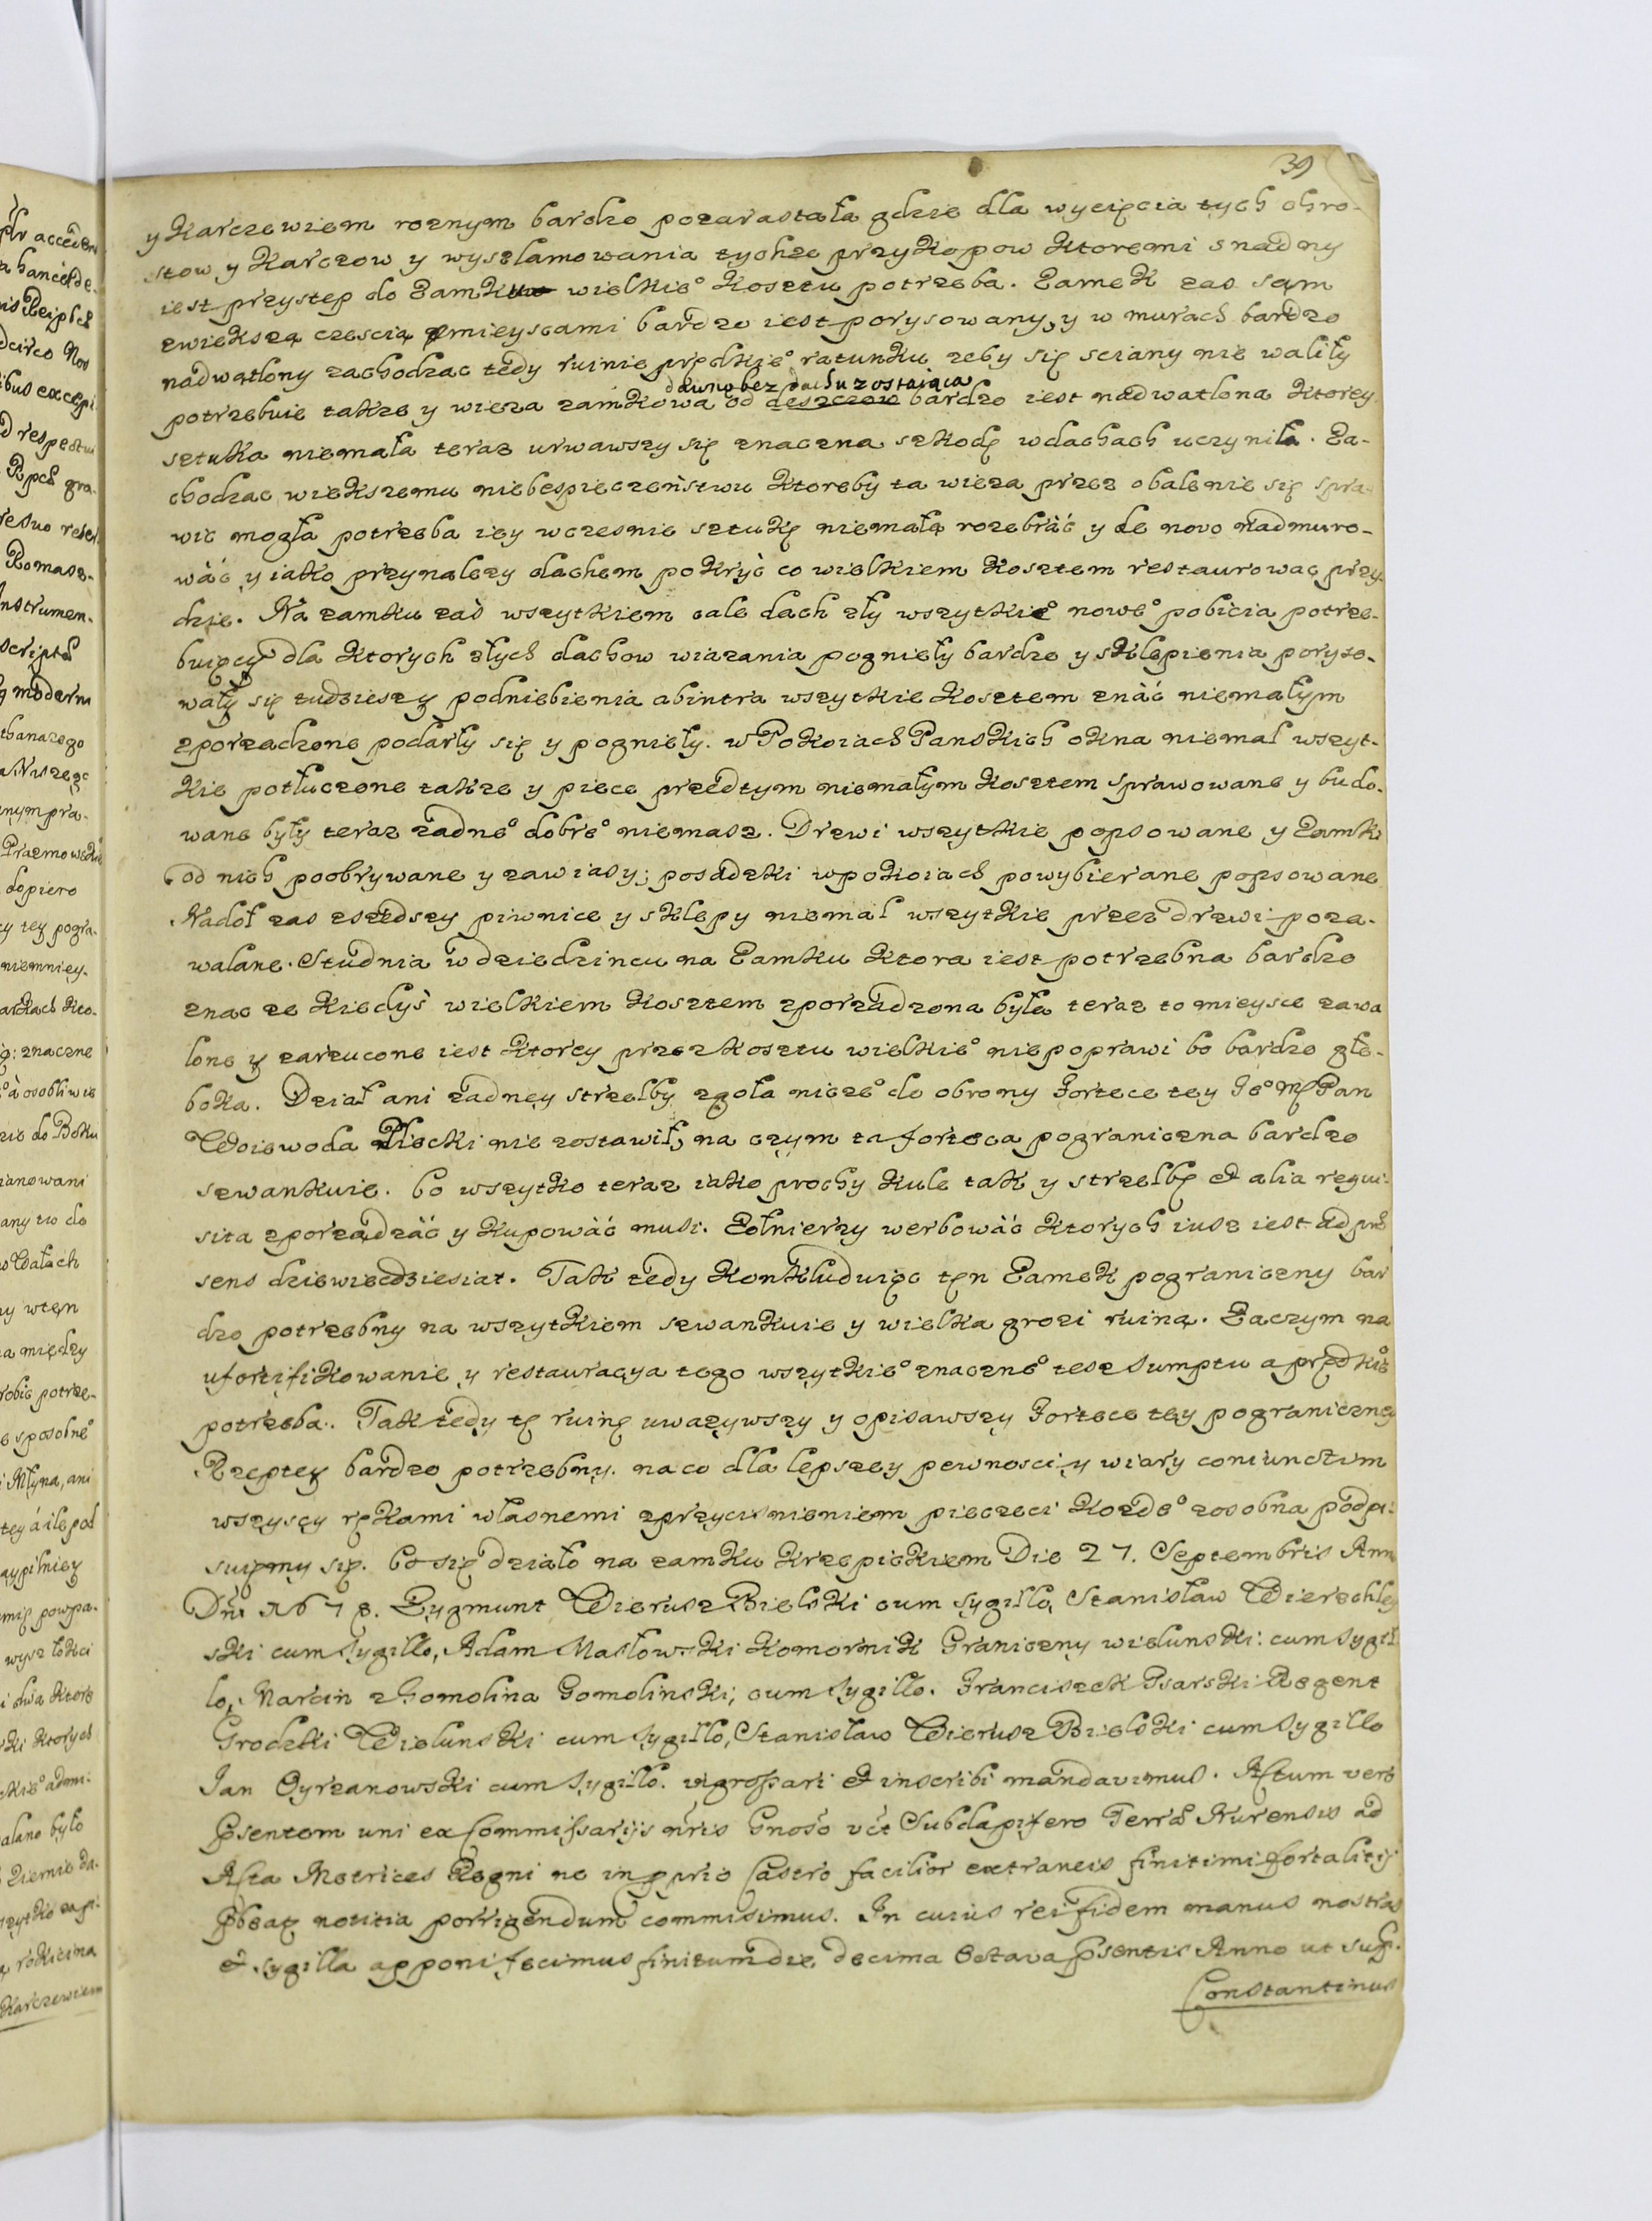 39
y Karczewiem roznym bardzo pozarastała gdzie dla wycięcia tych chro-
stow y Karczow y wyszlamowania tychze przykopow Ktoremi snadny
iest przystep do Zamku wielkie° Kosztu potrzeba. Zamek zas sam
zwiekszą czescią mieyscami bardzo iest porysowany, y w murach bardzo
nadwątlony zachodzac tedy ruinie prędkie° ratunku zeby się sciany nie waliły
dawno bez dachu zostaiąca
potrzebuie takze y wieza zamkowa od deszczow bardzo iest nadwatlona Ktorey
sztuka niemała teraz urwawszy się znaczna szkodę w dachach uczyniła. Za-
chodzac wiekszemu niebespieczeństwu Ktoreby ta wieza przez obalenie się spra-
wic mogła potrzeba iey wczesnie sztukę niemałą rozebràć y de novo nadmuro-
wàć y iako przynalezy dachem pokryć co wielkiem Kosztem restaurowac przy-
dzie. Nà zamku zaś wszytkiem cale dach zły wszytkie° nowe° pobicia potrze-
buięcy dla Ktorych złych dachow wiazania pogniely bardzo y sklepienia poryso-
wały się tudziesz y podniebienia abintra wszytkie Kosztem znàć niemałym
zporzadzone podarły się y pogniely. w Pokoiach Panskich okna niemal wszyt-
kie potłuczone takze y piece przedtym niemałym Kosztem sprawowane y budo-
wane były teraz zadne° dobre° niemasz. Drzwi wszytkie popsowane y Zamk
od nich poobrywane y zawiasy; posadzki w pokoiach powybierane popsowane
Nadoł zas zszedszy piwnice y sklepy niemal wszytkie przez drzwi poza-
walane. Studnia w dziedzincu na Zamku Ktora iest potrzebna bardzo
znac ze kiedyś wielkiem Kosztem zporządzona była teraz to mieysce zawa
lone y zarzucone iest Ktorey przez kosztu wielkie° niepoprawi bo bardzo głe-
boka. Dział ani zadney strzelby zgoła nicze° do obrony Fortece tey Je° Mę Pan
Woiewoda nie zostawił, na czym ta forteca pograniczna bardzo
szwankuie. bo wszytko teraz iako prochy kule tak y strzelbę et alia requi-
sita zporządzàć y kupowàć musi. Zołnierzy werbowàć Ktorych iusz iest ad præ
sens dziewiecdziesiat. Tak tedy Konkluduięc ten Zamek pograniczny bar
dzo potrzebny na wszytkiem szwankuie y wielka grozi ruiną. Zaczym na
ufortifikowanie y restauracya tego wszytkie° znaczne° tesz sumptu a prędkie°
potrzeba. Tak tedy tę ruinę uwazywszy y opisawszy Fortece tey pograniczney
Rzeptey bardzo potrzebny. na co dla lepszey pewnosci y wiary coniunctim
wszyscy rękami własnemi zprzycisnieniem pieczeci kozde° zosobna podpi-
suięmy się. Co się działo na zamku Krzepickiem Die 27. Septembris Ann
Dni 1678. Zygmunt Wierusz Bielski cum sygillo, Stanisław Wierzchley
ski cum sygillo, Adam Masłowski Komornik Graniczny wielunski: cum sygil
lo, Marcin z Gomolina Gomolinski, cum sygillo. Franciszek Psarski Regent
Grodzki Wielunski cum sygillo, Stanisław Wierusz Bielski cum sygillo
Jan Oyrzanowski cum sygillo. ingrossari et inscribi mandavimus. Actum vero
psentem uni ex Commissarijs nris Gnoso vct Subdapifero Terræ Nurensis ad
Acta Metrices Regni ne in pprio Castro facilior extraneis finitimi fortalitij
pbeatq notitia porrigendum commisimus. In cuius rei fidem manus nostras
et sygilla apponi fecimus finitum die decima Octava psentis Anno ut sup.
Constantinus